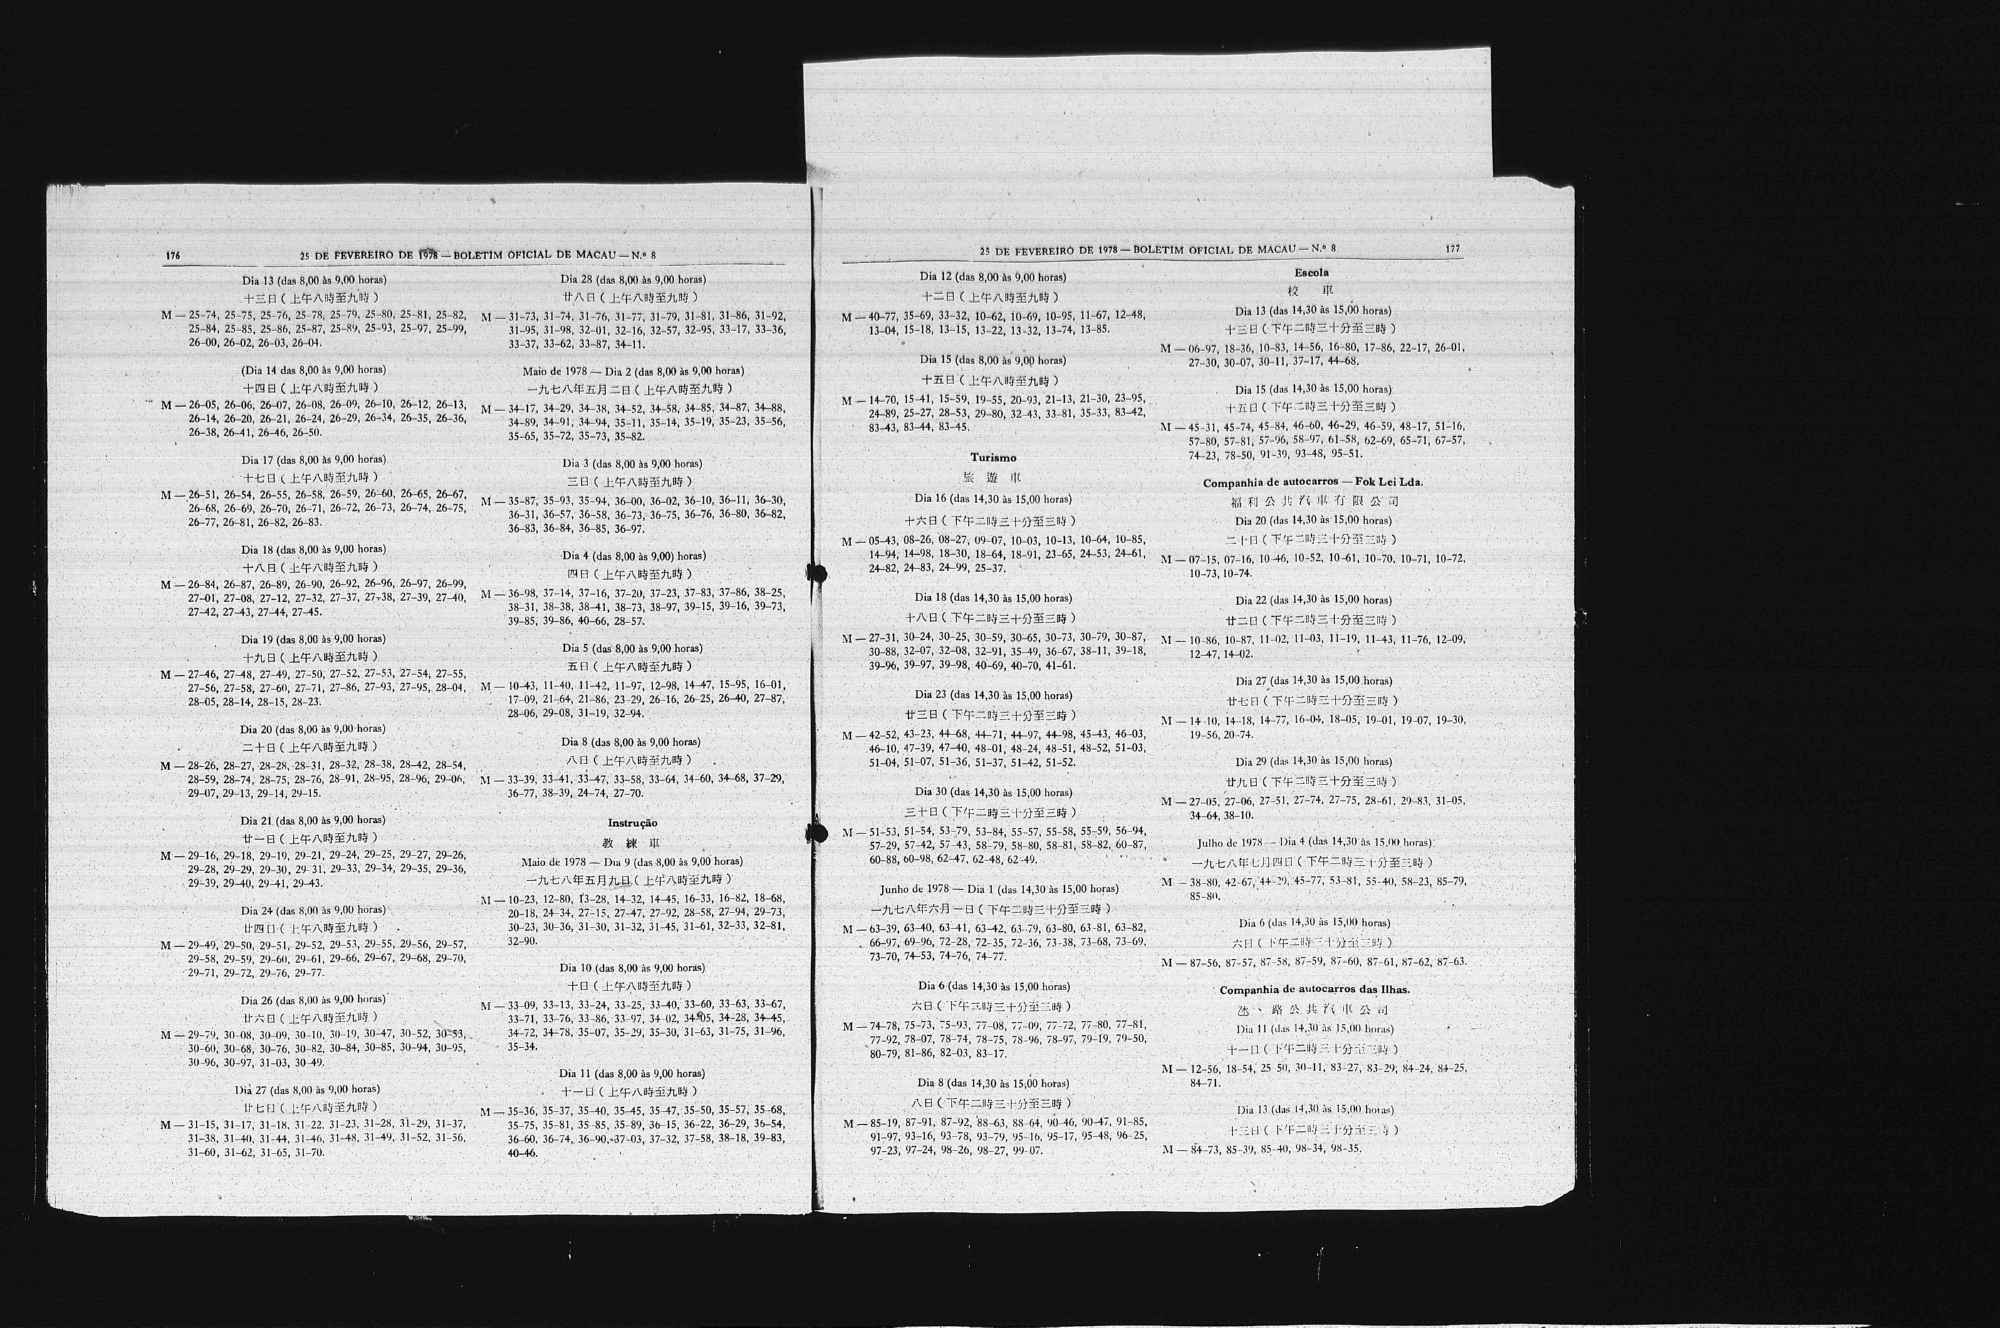 176 25 DE FEVEREIRO DE 1978 — BOLETIM OFICIAL DE MACAU — N.º 8
Dia 13 (das 8,00 às 9,00 horas)
十三日(上午八時至九時)
M — 25–74, 25–75, 25–76, 25–78, 25–79, 25–80, 25–81, 25–82,
25–84, 25–85, 25–86, 25–87, 25–89, 25–93, 25–97, 25–99,
26–00, 26–02, 26–03, 26–04.
(Dia 14 das 8,00 às 9,00 horas)
十四日(上午八時至九時)
M — 26–05, 26–06, 26–07, 26–08, 26–09, 26–10, 26–12, 26–13,
26–14, 26–20, 26–21, 26–24, 26–29, 26–34, 26–35, 26–36,
26–38, 26–41, 26–46, 26–50.
Dia 17 (das 8,00 às 9,00 horas)
十七日(上午八時至九時)
M — 26–51, 26–54, 26–55, 26–58, 26–59, 26–60, 26–65, 26–67,
26–68, 26–69, 26–70, 26–71, 26–72, 26–73, 26–74, 26–75,
26–77, 26–81, 26–82, 26–83.
Dia 18 (das 8,00 às 9,00 horas)
十八日(上午八時至九時)
M — 26–84, 26–87, 26–89, 26–90, 26–92, 26–96, 26–97, 26–99,
27–01, 27–08, 27–12, 27–32, 27–37, 27–38, 27–39, 27–40,
27–42, 27–43, 27–44, 27–45.
Dia 19 (das 8,00 às 9,00 horas)
十九日(上午八時至九時)
M — 27–46, 27–48, 27–49, 27–50, 27–52, 27–53, 27–54, 27–55,
27–56, 27–58, 27–60, 27–71, 27–86, 27–93, 27–95, 28–04,
28–05, 28–14, 28–15, 28–23.
Dia 20 (das 8,00 às 9,00 horas)
二十日(上午八時至九時)
M — 28–26, 28–27, 28–28, 28–31, 28–32, 28–38, 28–42, 28–54,
28–59, 28–74, 28–75, 28–76, 28–91, 28–95, 28–96, 29–06,
29–07, 29–13, 29–14, 29–15.
Dia 21 (das 8,00 às 9,00 horas)
廿一日(上午八時至九時)
M — 29–16, 29–18, 29–19, 29–21, 29–24, 29–25, 29–27, 29–26,
29–28, 29–29, 29–30, 29–31, 29–33, 29–34, 29–35, 29–36,
29–39, 29–40, 29–41, 29–43.
Dia 24 (das 8,00 às 9,00 horas)
廿四日(上午八時至九時)
M — 29–49, 29–50, 29–51, 29–52, 29–53, 29–55, 29–56, 29–57,
29–58, 29–59, 29–60, 29–61, 29–66, 29–67, 29–68, 29–70,
29–71, 29–72, 29–76, 29–77.
Dia 26 (das 8,00 às 9,00 horas)
廿六日(上午八時至九時)
M — 29–79, 30–08, 30–09, 30–10, 30–19, 30–47, 30–52, 30–53,
30–60, 30–68, 30–76, 30–82, 30–84, 30–85, 30–94, 30–95,
30–96, 30–97, 31–03, 30–49.
Dia 27 (das 8,00 às 9,00 horas)
廿七日(上午八時至九時)
M — 31–15, 31–17, 31–18, 31–22, 31–23, 31–28, 31–29, 31–37,
31–38, 31–40, 31–44, 31–46, 31–48, 31–49, 31–52, 31–56,
31–60, 31–62, 31–65, 31–70.
Dia 28 (das 8,00 às 9,00 horas)
廿八日(上午八時至九時)
M — 31–73, 31–74, 31–76, 31–77, 31–79, 31–81, 31–86, 31–92,
31–95, 31–98, 32–01, 32–16, 32–57, 32–95, 33–17, 33–36,
33–37, 33–62, 33–87, 34–11.
Maio de 1978 — Dia 2 (das 8,00 às 9,00 horas)
一九七八年五月二日(上午八時至九時)
M — 34–17, 34–29, 34–38, 34–52, 34–58, 34–85, 34–87, 34–88,
34–89, 34–91, 34–94, 35–11, 35–14, 35–19, 35–23, 35–56,
35–65, 35–72, 35–73, 35–82.
Dia 3 (das 8,00 às 9,00 horas)
三日(上午八時至九時)
M — 35–87, 35–93, 35–94, 36–00, 36–02, 36–10, 36–11, 36–30,
36–31, 36–57, 36–58, 36–73, 36–75, 36–76, 36–80, 36–82,
36–83, 36–84, 36–85, 36–97.
Dia 4 (das 8,00 às 9,00) horas)
四日(上午八時至九時)
M — 36–98, 37–14, 37–16, 37–20, 37–23, 37–83, 37–86, 38–25,
38–31, 38–38, 38–41, 38–73, 38–97, 39–15, 39–16, 39–73,
39–85, 39–86, 40–66, 28–57.
Dia 5 (das 8,00 às 9,00 horas)
五日(上午八時至九時)
M — 10–43, 11–40, 11–42, 11–97, 12–98, 14–47, 15–95, 16–01,
17–09, 21–64, 21–86, 23–29, 26–16, 26–25, 26–40, 27–87,
28–06, 29–08, 31–19, 32–94.
Dia 8 (das 8,00 às 9,00 horas)
八日(上午八時至九時)
M — 33–39, 33–41, 33–47, 33–58, 33–64, 34–60, 34–68, 37–29,
36–77, 38–39, 24–74, 27–70.
Instrução
教練車
Maio de 1978 — Dia 9 (das 8,00 às 9,00 horas)
一九七八年五月九日(上午八時至九時)
M — 10–23, 12–80, 13–28, 14–32, 14–45, 16–33, 16–82, 18–68,
20–18, 24–34, 27–15, 27–47, 27–92, 28–58, 27–94, 29–73,
30–23, 30–36, 31–30, 31–32, 31–45, 31–61, 32–33, 32–81,
32–90.
Dia 10 (das 8,00 às 9,00 horas)
十日(上午八時至九時)
M — 33–09, 33–13, 33–24, 33–25, 33–40, 33–60, 33–63, 33–67,
33–71, 33–76, 33–86, 33–97, 34–02, 34–05, 34–28, 34–45,
34–72, 34–78, 35–07, 35–29, 35–30, 31–63, 31–75, 31–96,
35–34.
Dia 11 (das 8,00 às 9,00 horas)
十一日(上午八時至九時)
M — 35–36, 35–37, 35–40, 35–45, 35–47, 35–50, 35–57, 35–68,
35–75, 35–81, 35–85, 35–89, 36–15, 36–22, 36–29, 36–54,
36–60, 36–74, 36–90, 37–03, 37–32, 37–58, 38–18, 39–83,
40–46.
25 DE FEVEREIRO DE 1978 — BOLETIM OFICIAL DE MACAU — N.º 8 177
Dia 12 (das 8,00 às 9,00 horas)
十二日(上午八時至九時)
M — 40–77, 35–69, 33–32, 10–62, 10–69, 10–95, 11–67, 12–48,
13–04, 15–18, 13–15, 13–22, 13–32, 13–74, 13–85.
Dia 15 (das 8,00 às 9,00 horas)
十五日(上午八時至九時)
M — 14–70, 15–41, 15–59, 19–55, 20–93, 21–13, 21–30, 23–95,
24–89, 25–27, 28–53, 29–80, 32–43, 33–81, 35–33, 83–42,
83–43, 83–44, 83–45.
Turismo
旅遊車
Dia 16 (das 14,30 às 15,00 horas)
十六日(下午二時三十分至三時)
M — 05–43, 08–26, 08–27, 09–07, 10–03, 10–13, 10–64, 10–85,
14–94, 14–98, 18–30, 18–64, 18–91, 23–65, 24–53, 24–61,
24–82, 24–83, 24–99, 25–37.
Dia 18 (das 14,30 às 15,00 horas)
十八日(下午二時三十分至三時)
M — 27–31, 30–24, 30–25, 30–59, 30–65, 30–73, 30–79, 30–87,
30–88, 32–07, 32–08, 32–91, 35–49, 36–67, 38–11, 39–18,
39–96, 39–97, 39–98, 40–69, 40–70, 41–61.
Dia 23 (das 14,30 às 15,00 horas)
廿三日(下午二時三十分至三時)
M — 42–52, 43–23, 44–68, 44–71, 44–97, 44–98, 45–43, 46–03,
46–10, 47–39, 47–40, 48–01, 48–24, 48–51, 48–52, 51–03,
51–04, 51–07, 51–36, 51–37, 51–42, 51–52.
Dia 30 (das 14,30 às 15,00 horas)
三十日(下午二時三十分至三時)
M — 51–53, 51–54, 53–79, 53–84, 55–57, 55–58, 55–59, 56–94,
57–29, 57–42, 57–43, 58–79, 58–80, 58–81, 58–82, 60–87,
60–88, 60–98, 62–47, 62–48, 62–49.
Junho de 1978 — Dia 1 (das 14,30 às 15,00 horas)
一九七八年六月一日(下午二時三十分至三時)
M — 63–39, 63–40, 63–41, 63–42, 63–79, 63–80, 63–81, 63–82,
66–97, 69–96, 72–28, 72–35, 72–36, 73–38, 73–68, 73–69,
73–70, 74–53, 74–76, 74–77.
Dia 6 (das 14,30 às 15,00 horas)
六日(下午二時三十分至三時)
M — 74–78, 75–73, 75–93, 77–08, 77–09, 77–72, 77–80, 77–81,
77–92, 78–07, 78–74, 78–75, 78–96, 78–97, 79–19, 79–50,
80–79, 81–86, 82–03, 83–17.
Dia 8 (das 14,30 às 15,00 horas)
八日(下午二時三十分至三時)
M — 85–19, 87–91, 87–92, 88–63, 88–64, 90–46, 90–47, 91–85,
91–97, 93–16, 93–78, 93–79, 95–16, 95–17, 95–48, 96–25,
97–23, 97–24, 98–26, 98–27, 99–07.
Escola
校車
Dia 13 (das 14,30 às 15,00 horas)
十三日(下午二時三十分至三時)
M — 06–97, 18–36, 10–83, 14–56, 16–80, 17–86, 22–17, 26–01,
27–30, 30–07, 30–11, 37–17, 44–68.
Dia 15 (das 14,30 às 15,00 horas)
十五日(下午二時三十分至三時)
M — 45–31, 45–74, 45–84, 46–60, 46–29, 46–59, 48–17, 51–16,
57–80, 57–81, 57–96, 58–97, 61–58, 62–69, 65–71, 67–57,
74–23, 78–50, 91–39, 93–48, 95–51.
Companhia de autocarros — Fok Lei Lda.
福利公共汽車有限公司
Dia 20 (das 14,30 às 15,00 horas)
二十日(下午二時三十分至三時)
M — 07–15, 07–16, 10–46, 10–52, 10–61, 10–70, 10–71, 10–72,
10–73, 10–74.
Dia 22 (das 14,30 às 15,00 horas)
廿二日(下午二時三十分至三時)
M — 10–86, 10–87, 11–02, 11–03, 11–19, 11–43, 11–76, 12–09,
12–47, 14–02.
Dia 27 (das 14,30 às 15,00 horas)
廿七日(下午二時三十分至三時)
M — 14–10, 14–18, 14–77, 16–04, 18–05, 19–01, 19–07, 19–30,
19–56, 20–74.
Dia 29 (das 14,30 às 15,00 horas)
廿九日(下午二時三十分至三時)
M — 27–05, 27–06, 27–51, 27–74, 27–75, 28–61, 29–83, 31–05,
34–64, 38–10.
Julho de 1978 — Dia 4 (das 14,30 às 15,00 horas)
一九七八年七月四日(下午二時三十分至三時)
M — 38–80, 42–67, 44–29, 45–77, 53–81, 55–40, 58–23, 85–79,
85–80.
Dia 6 (das 14,30 às 15,00 horas)
六日(下午二時三十分至三時)
M — 87–56, 87–57, 87–58, 87–59, 87–60, 87–61, 87–62, 87–63.
Companhia de autocarros das Ilhas.
路公共汽車公司
Dia 11 (das 14,30 às 15,00 horas)
十一日(下午二時三十分至三時)
M — 12–56, 18–54, 25–50, 30–11, 83–27, 83–29, 84–24, 84–25,
84–71.
Dia 13 (das 14,30 às 15,00 horas)
十三日(下午二時三十分至三時)
M — 84–73, 85–39, 85–40, 98–34, 98–35.